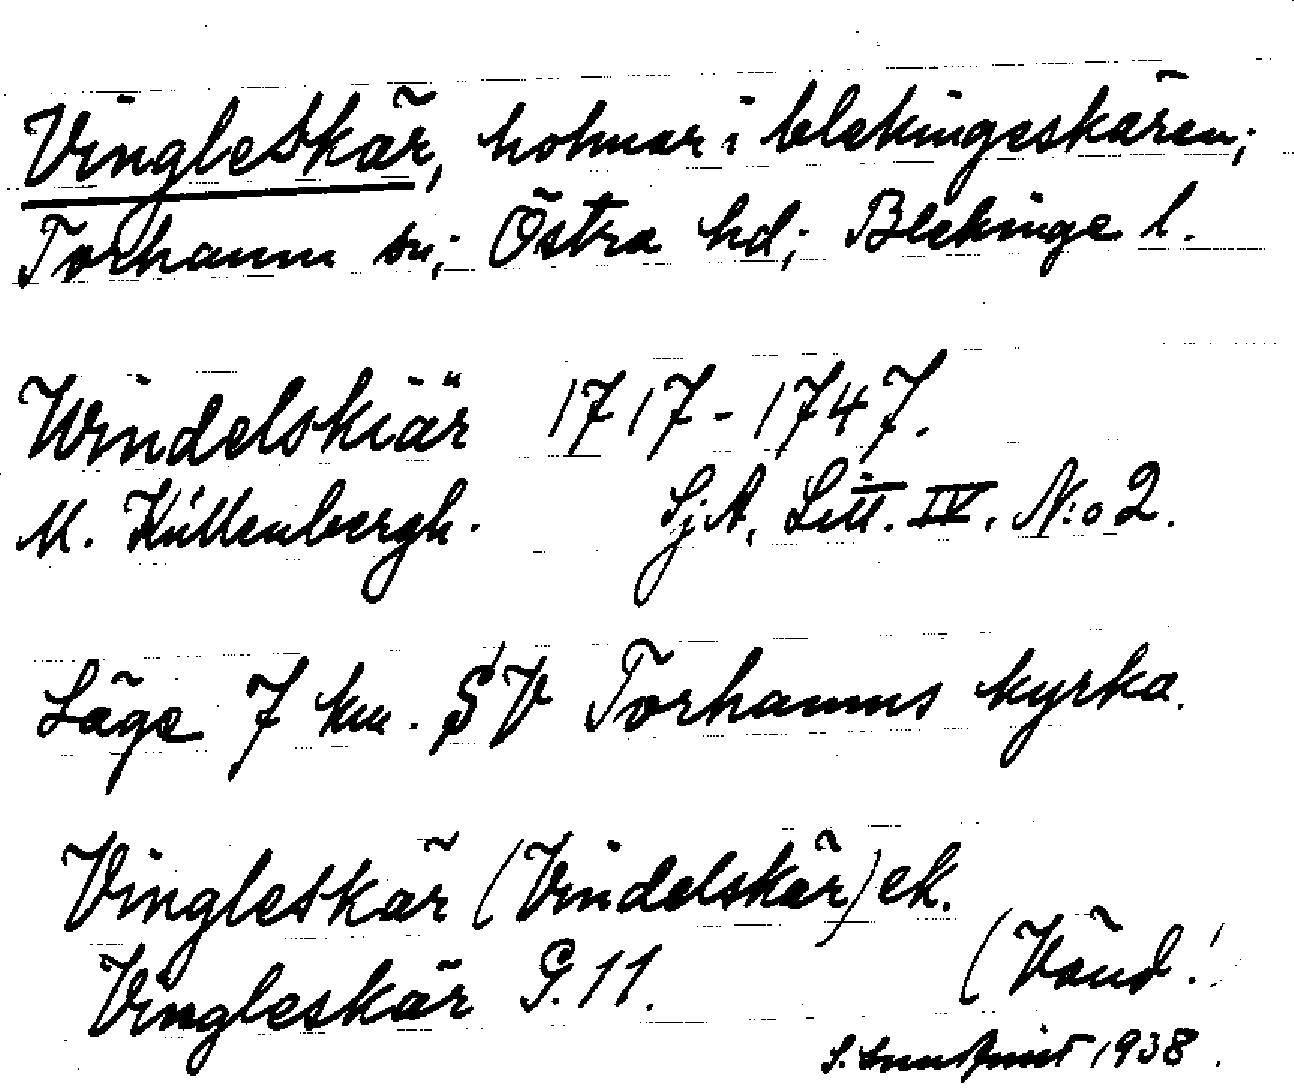 Vingleskär, holmar i blekingeskären;
Torhamn sn; Östra hd; Blekinge l.
Windelskiär 1717-1747.
M. Küllenbergh. Sj.A. Litt. IV. N:o 2.
Läge 7 km. SV Torhamns kyrka.
Vingleskär (Vindelskär) ek.
Vingleskär G.11. (Vänd!
S. 1938.